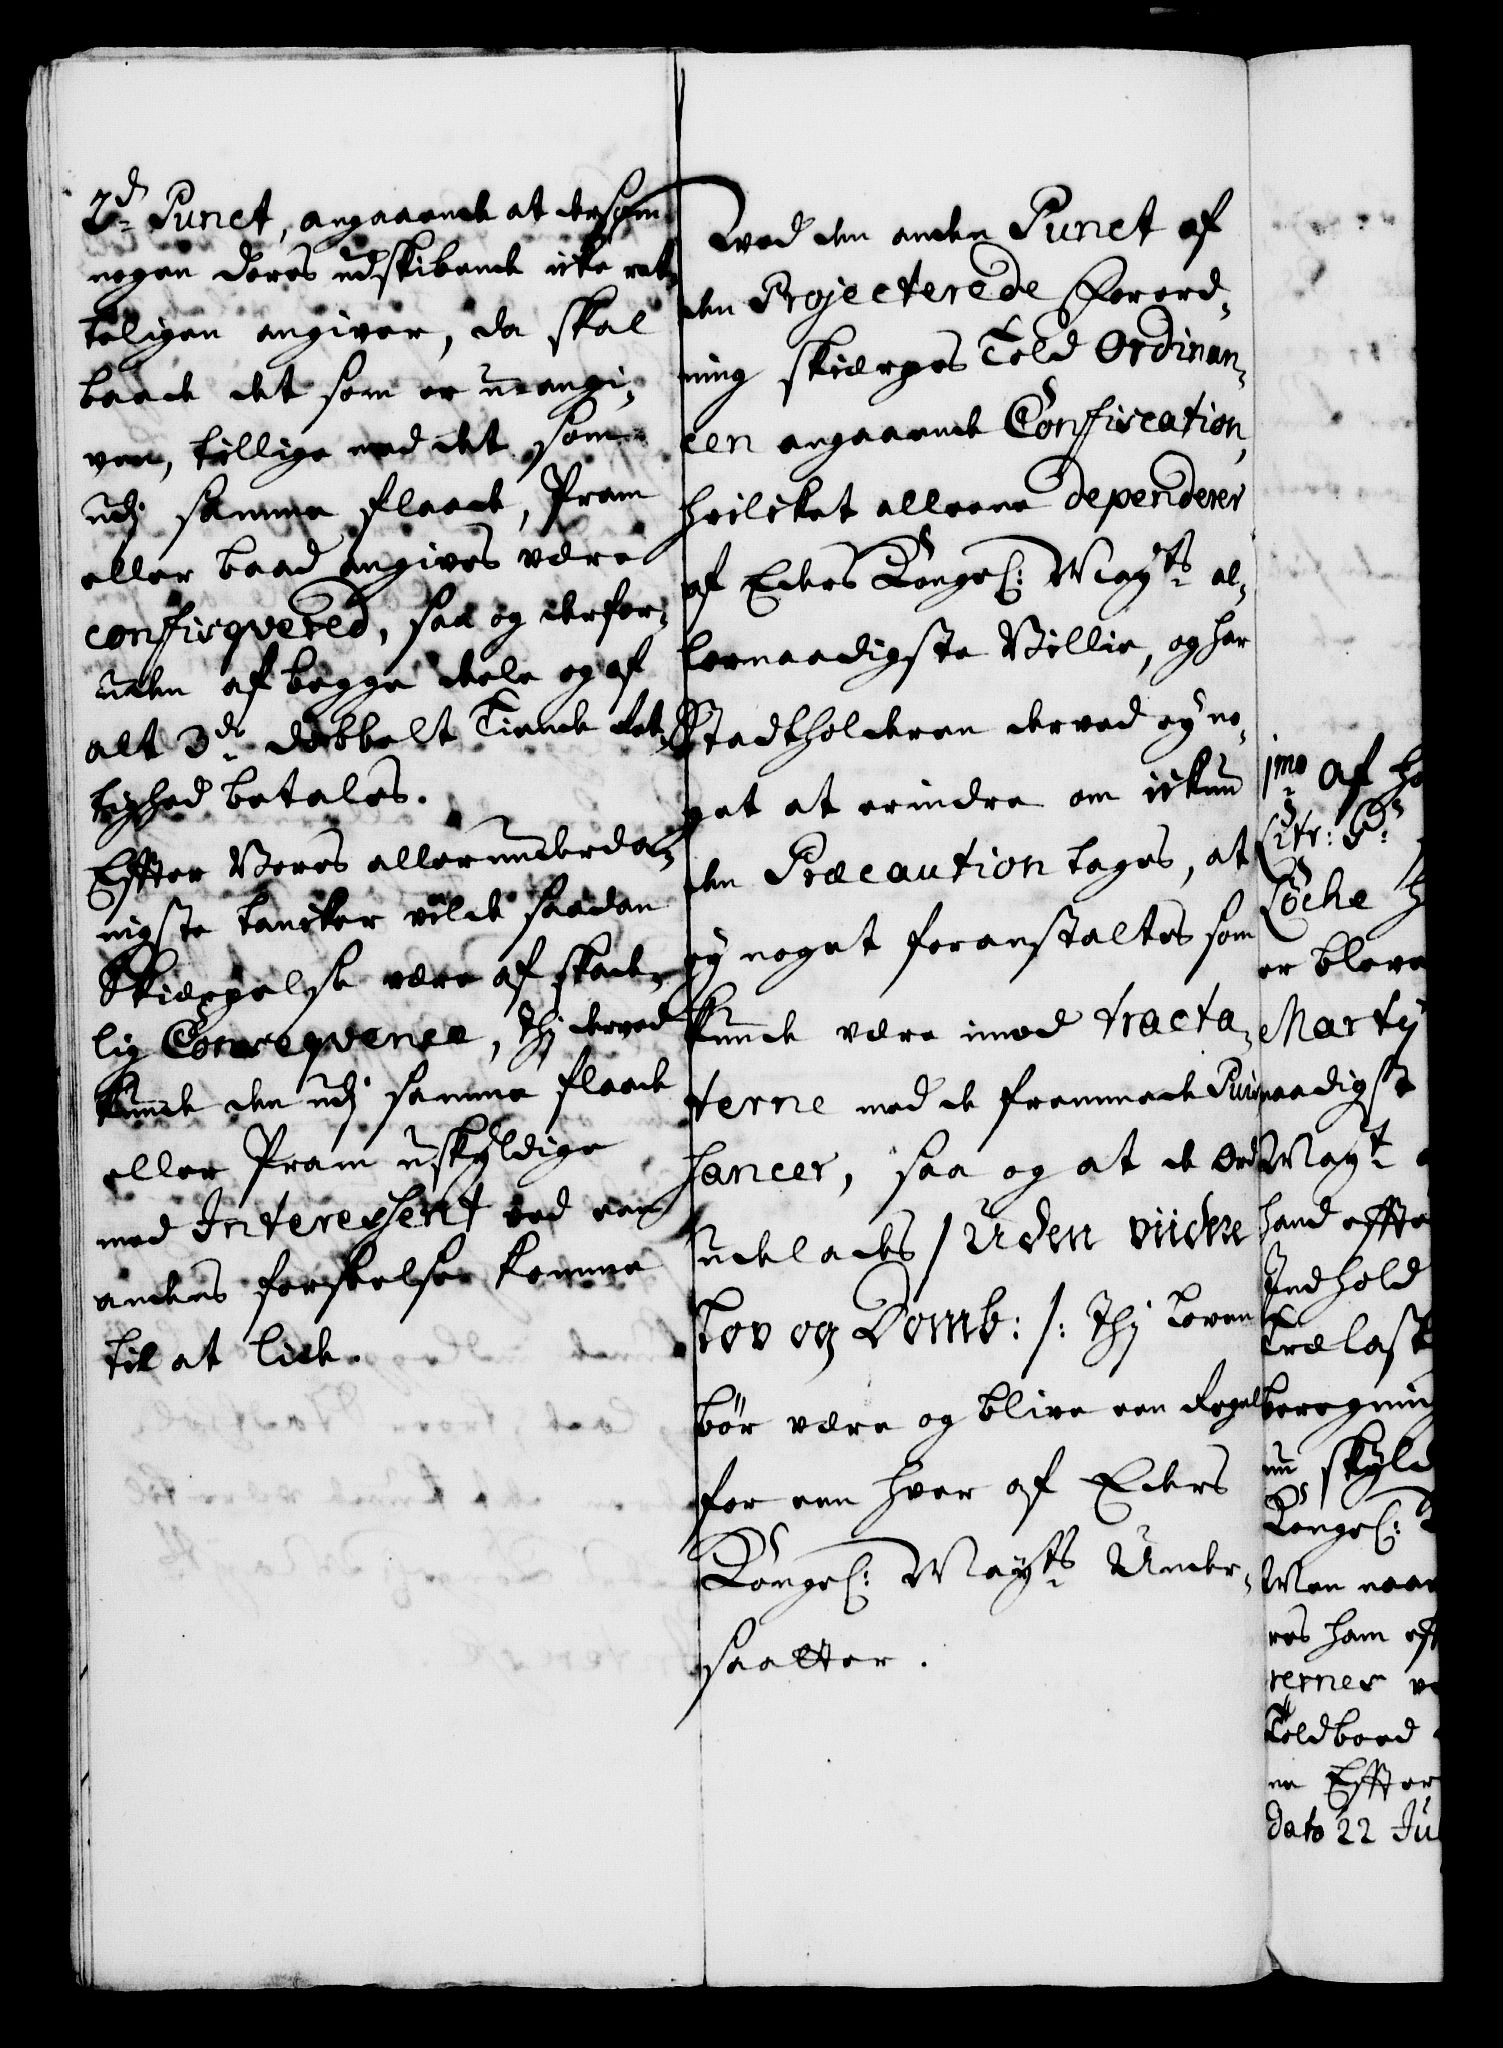 2d Punct, angaaende at dersom
nogen deres udskibende icke ret-
teligen angiver, da skal
baade det som er uangi-
ven, tillige med det som
udj samme flaade, Pram
eller baad angives være
confisqvered, saa og derfor-
uden af begge deele og af
alt 3de dobbelt Tiende Ret-
tighed betales.
Effter Vores allerunderda-
nigste tancker vilde saadan
Skiærpelse være af skade-
lig Conseqvence, thj derved
kunde den udj samme flaade
eller Pram uskyldige
med Interessent ved een
andens forseelse komme
til at lide.
Ved den anden Punct af
den Projecterede Forord-
ning skiærpes Told Ordinan-
cen angaaende Confiscation,
hvilcket alleene dependerer
af Eders Kongel: Mayts al-
lernaadigste Villie, og har
Stadtholderen derved ey no-
get at erindre om ickun
den Præcaution tages, at
ey noget foranstaltes som
kunde være imod tracta-
terne med de fremmede Puis-
sancer, saa og at de Ord
udelades /: Uden viidere
Lov og Domb: /: thj Loven
bør være og blive een Regel
for een hver af Eders
Kongel: Mayts Under-
saatter.
1mo Af
Citr:
Töche
er bleve
Marty
naadigst
Mayt
hand effte
Indhold
Trælast
beregning
skyld
Kongel:
Men naar
res ham eff
rerner
Toldboed
ne Effter
dato 22 Ju